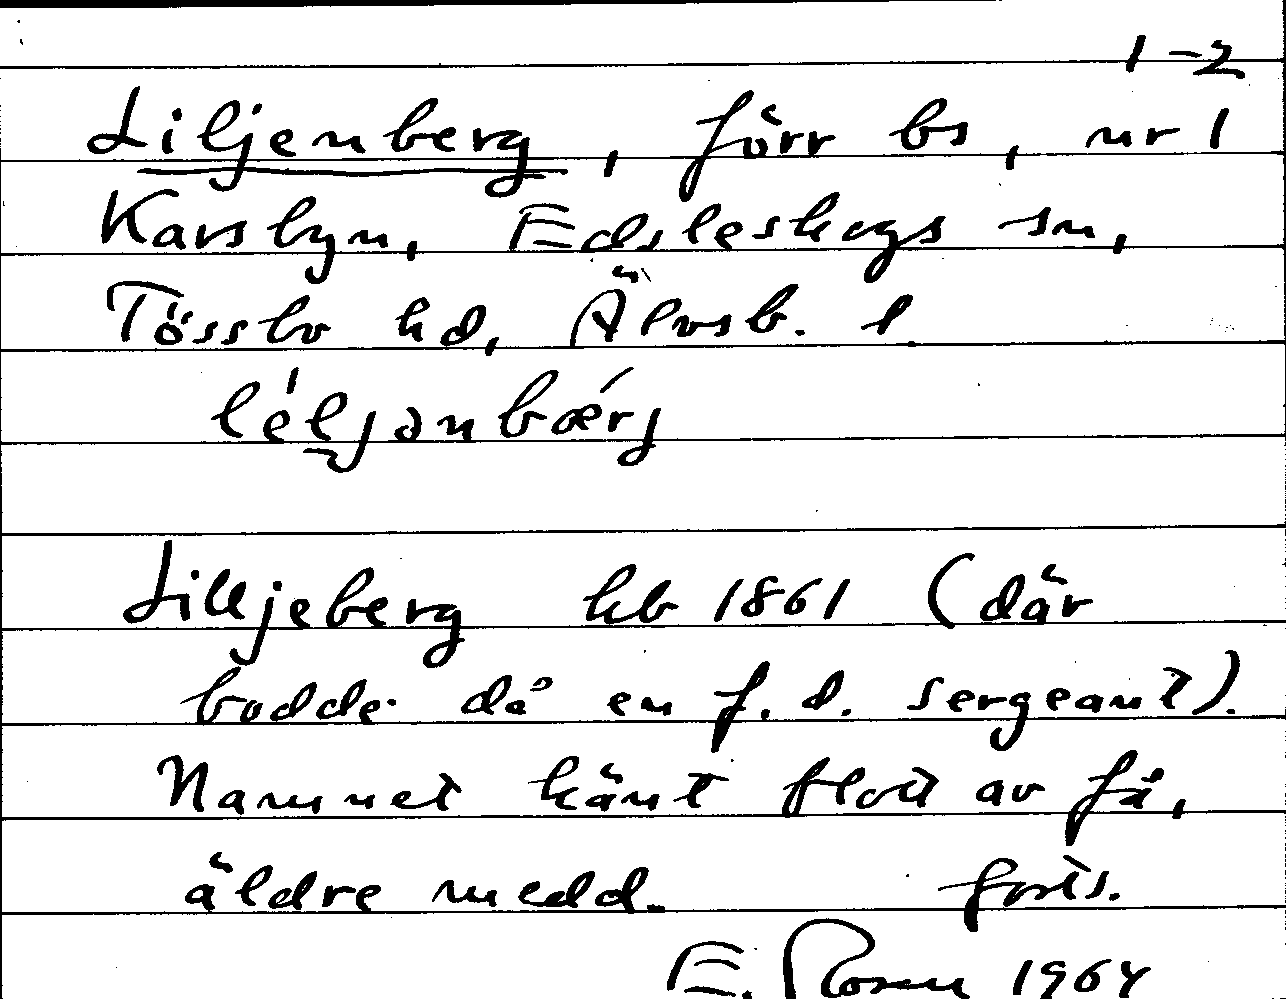 1-2
Liljenberg, förr bs, nr 1
Karsbyn, Edsleskogs sn,
Tössbo hd, Älvsb. l.
lé̀ljənbǽrj
Lilljeberg kb 1861 (där
bodde då en f. d. sergeant).
Namnet känt blott av få,
äldre medd. forts.
E. Rosen 1964